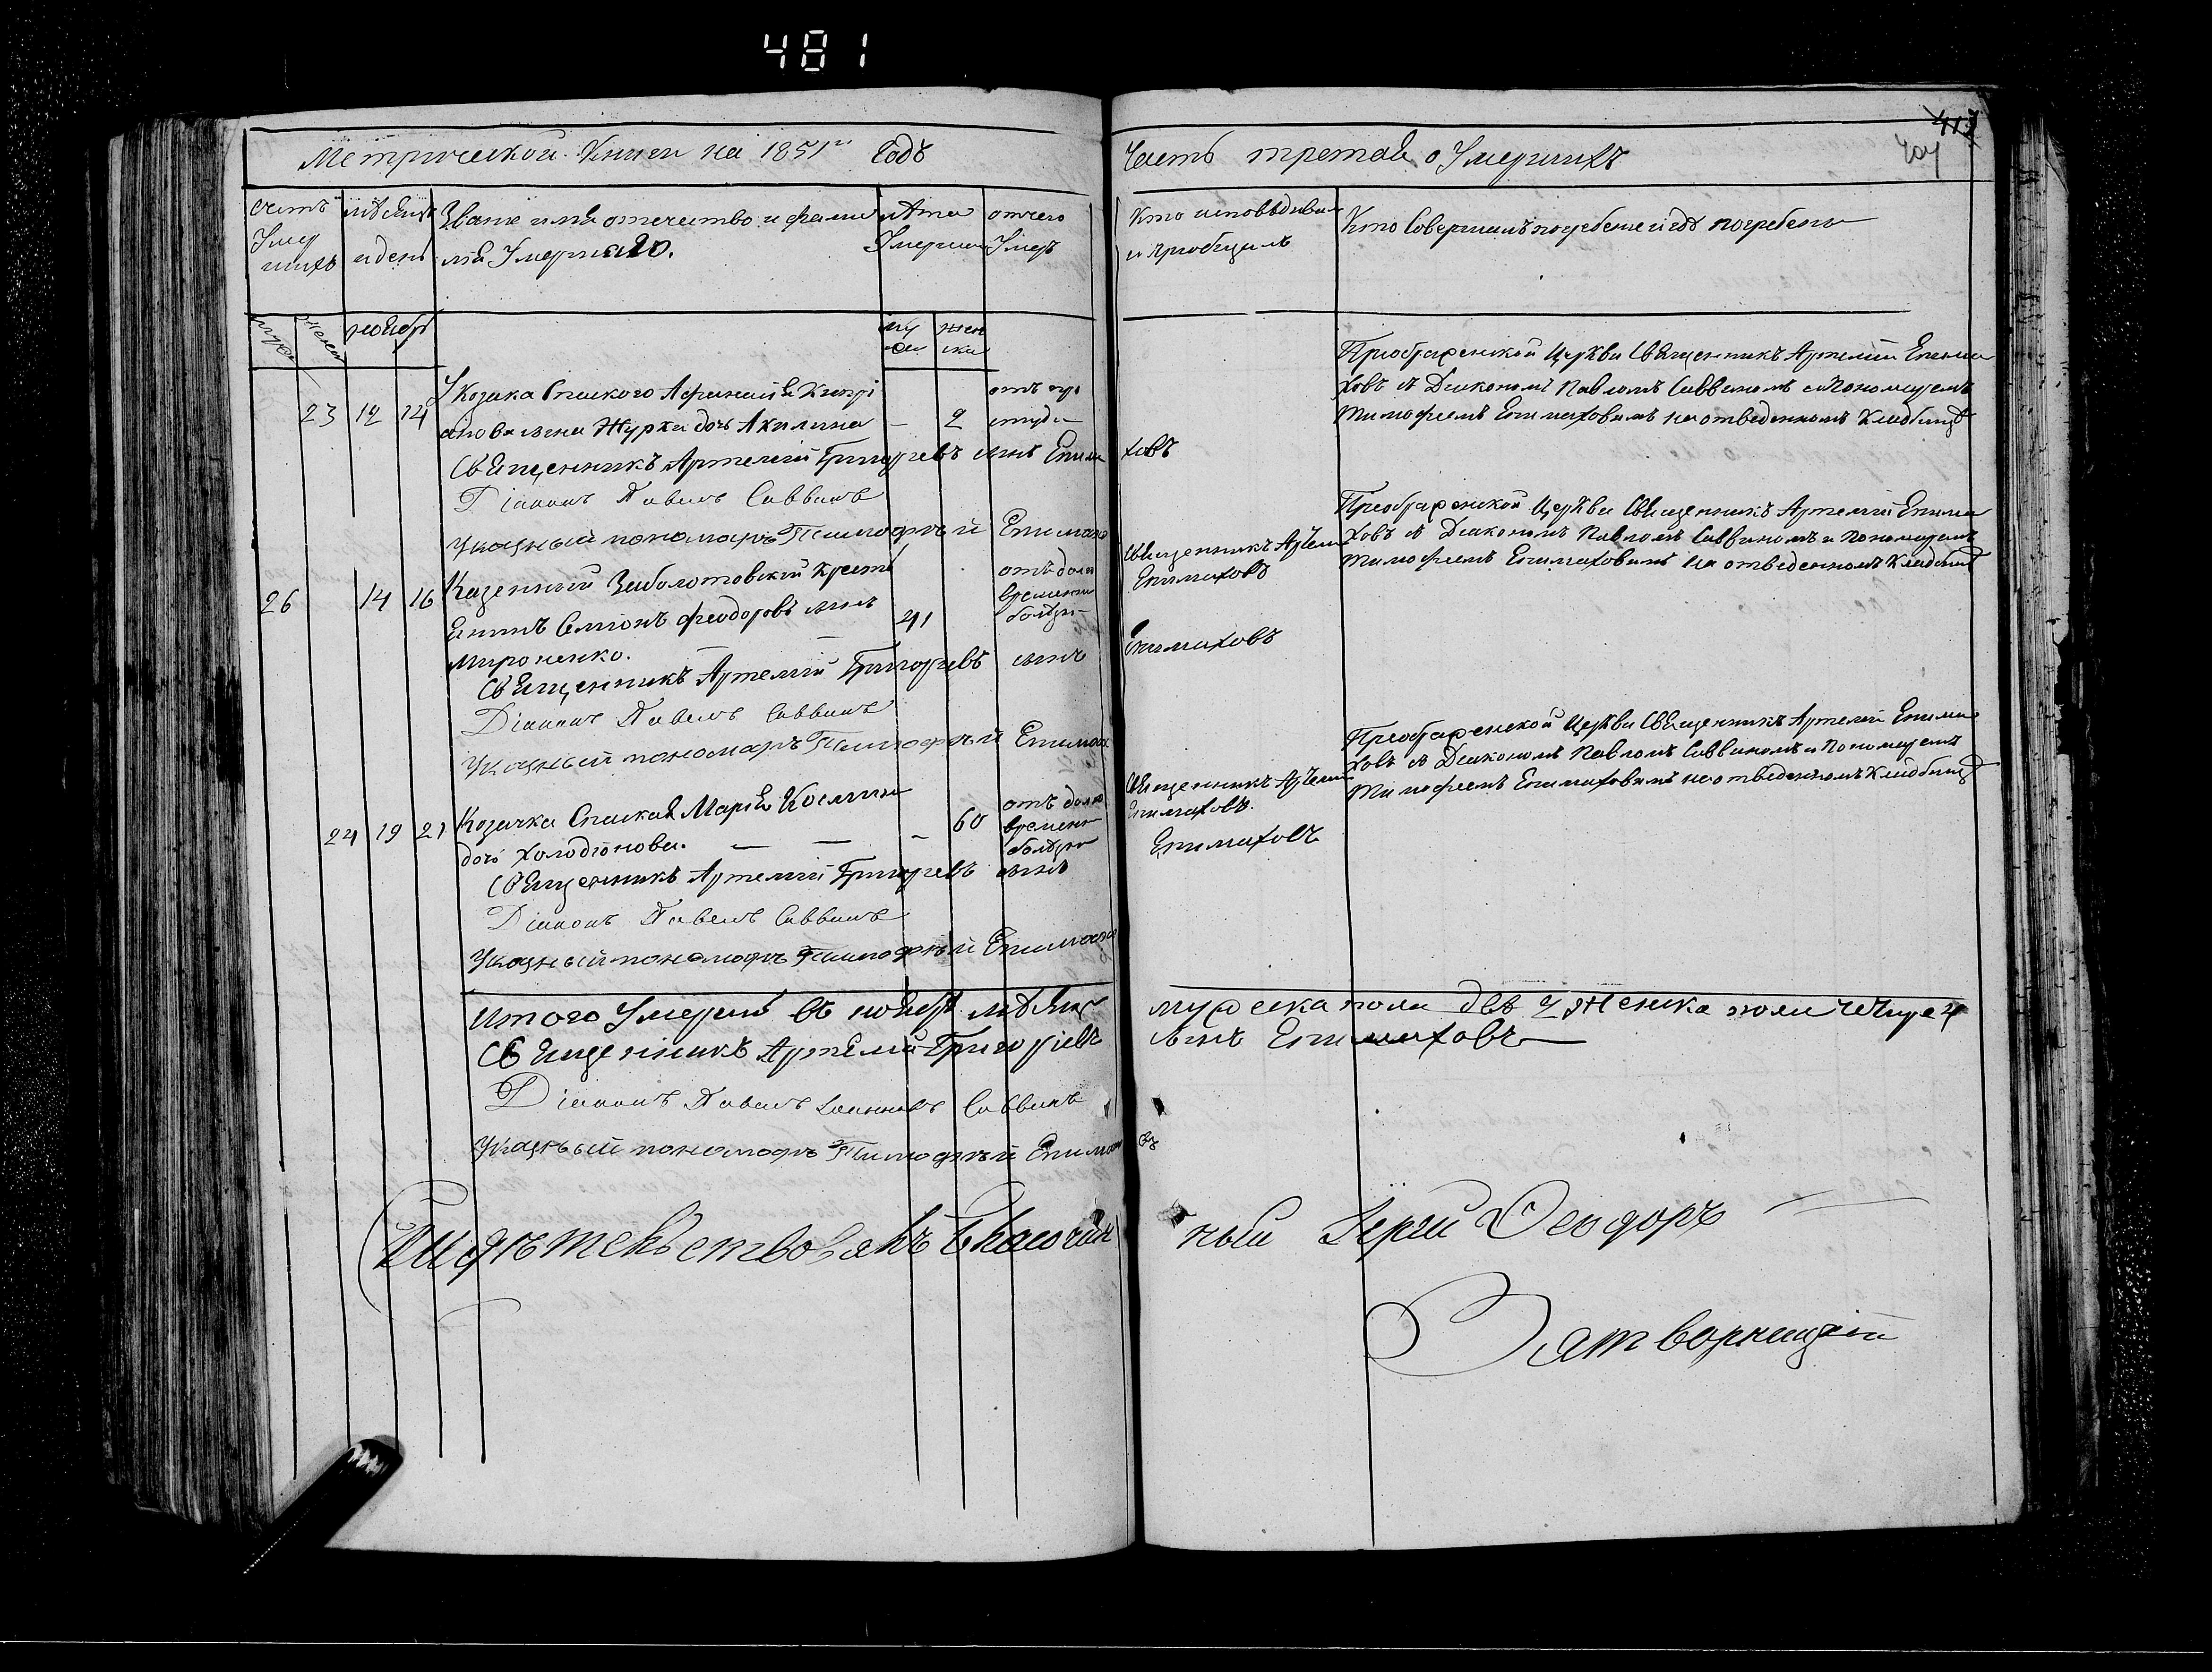 481
Метрической Книги на 1851й Годъ
Часть третая о Умершихъ
417
Счетъ Умершихъ
мѣсяцъ и день
Званiе имя отечество и фамилiя Умершаго.
лѣта Умершихъ
отчего Умеръ
Кто исповѣдывалъ и прiобщилъ
Кто Совершалъ погребенiе и гдѣ погребены
муж женс
ноябрь
муж женска
23 12 14
У Козака Спаского Афанасiя Кипрi
янова сына Журки дочь Акилина — 2
отъ простуды
Преображенской Церкви Священникъ Артемiй Епима
ховъ съ Дiякономъ Павломъ Саввинымъ и Пономаремъ
Тимофеемъ Епимаховымъ на отведенномъ Кладбищѣ
Священникъ Артемiй Григорiевъ сынъ Епима ховъ
Дiаконъ Павелъ Саввинъ
Указный пономарь Тимофѣй Епимахо
26 14 16
Казенный Заболотовскiй крестья
нинъ Семiонъ Феодоровъ сынъ 41
Мироненко.
отъ долговременной болѣзни
Священникъ Артемiй Епимаховъ
Преображенской Церкви Священникъ Артемiй Епима
ховъ съ Дiякономъ Павломъ Саввинымъ и Пономаремъ
Тимофеемъ Епимаховымъ на отведенномъ Кладбищѣ
Священникъ Артемiй Григорiевъ сынъ Епимаховъ
Дiаконъ Павелъ Саввинъ
Указный пономарь Тимофѣй Епимахо
24 19 21
Козачка Спаская Марiя Космина
дочь Холодiонова. — — — 60
отъ долговременной болѣзни
Священникъ Артемiй Епимаховъ.
Преображенской Церкви Священникъ Артемiй Епима
ховъ съ Дiякономъ Павломъ Саввинымъ и Пономаремъ
Тимофеемъ Епимаховымъ на отведенномъ Кладбищѣ
Священникъ Артемiй Григорiевъ сынъ Епимаховъ
Дiаконъ Павелъ Саввинъ
Указный пономарь Тимофѣй Епимахо
Итого Умерло въ ноябрѣ мѣсяцѣ мужеска пола два 2 женска пола четыре 4
Священникъ Артемiй Григорiевъ сынъ Епимаховъ
Дiаконъ Павелъ Iоанновъ Саввинъ
Указный пономарь Тимофѣй Епимахо въ
Свидѣтельствовалъ Благочинный Iерей Ѳеодоръ
Затворницкiй